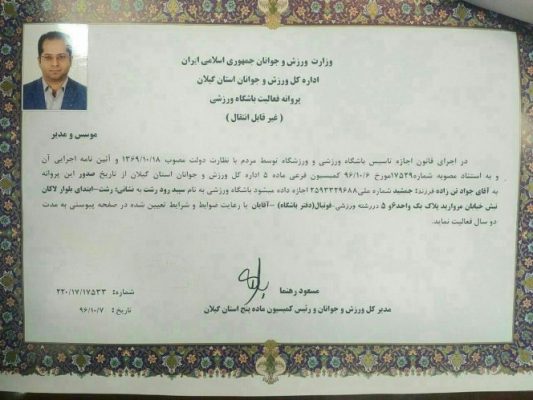 وزارت ورزش و جوانان جمهوری اسلامی ایران
اداره کل ورزش و جوانان استان گیلان
پروانه فعالیت باشگاه ورزشی
( غیر قابل انتقال )
موسس و مدیر
در اجرای قانون اجازه تاسیس باشگاه ورزشی و ورزشگاه توسط مردم با نظارت دولت مصوب ۱۳۶۹/۱۰/۱۸ و آئین نامه اجرایی آن
و به استناد مصوبه شماره ۱۷۵۲۹مورخ ۹۶/۱۰/۶ کمیسیون فرعی ماده ۵ اداره کل ورزش و جوانان استان گیلان از تاریخ صدور این پروانه
به آقای جواد تن زاده فرزند: جمشید شماره ملی۲۵۹۳۳۲۹۶۸۸ اجازه داده میشود باشگاه ورزشی به نام سپید رود رشت به نشانی: رشت-ابتدای بلوار لاکان
نبش خیابان مروارید پلاک یک واحد۶و ۵ دررشته ورزشی-فوتبال(دفتر باشگاه) -آقایان با رعایت ضوابط و شرایط تعیین شده در صفحه پیوستی به مدت
دو سال فعالیت نماید.
مسعود رهنما
مدیر کل ورزش و جوانان و رئیس کمیسیون ماده پنج استان گیلان
شماره: ۲۲۰/۱۷/۱۷۵۳۳
تاریخ : ۹۶/۱۰/۷